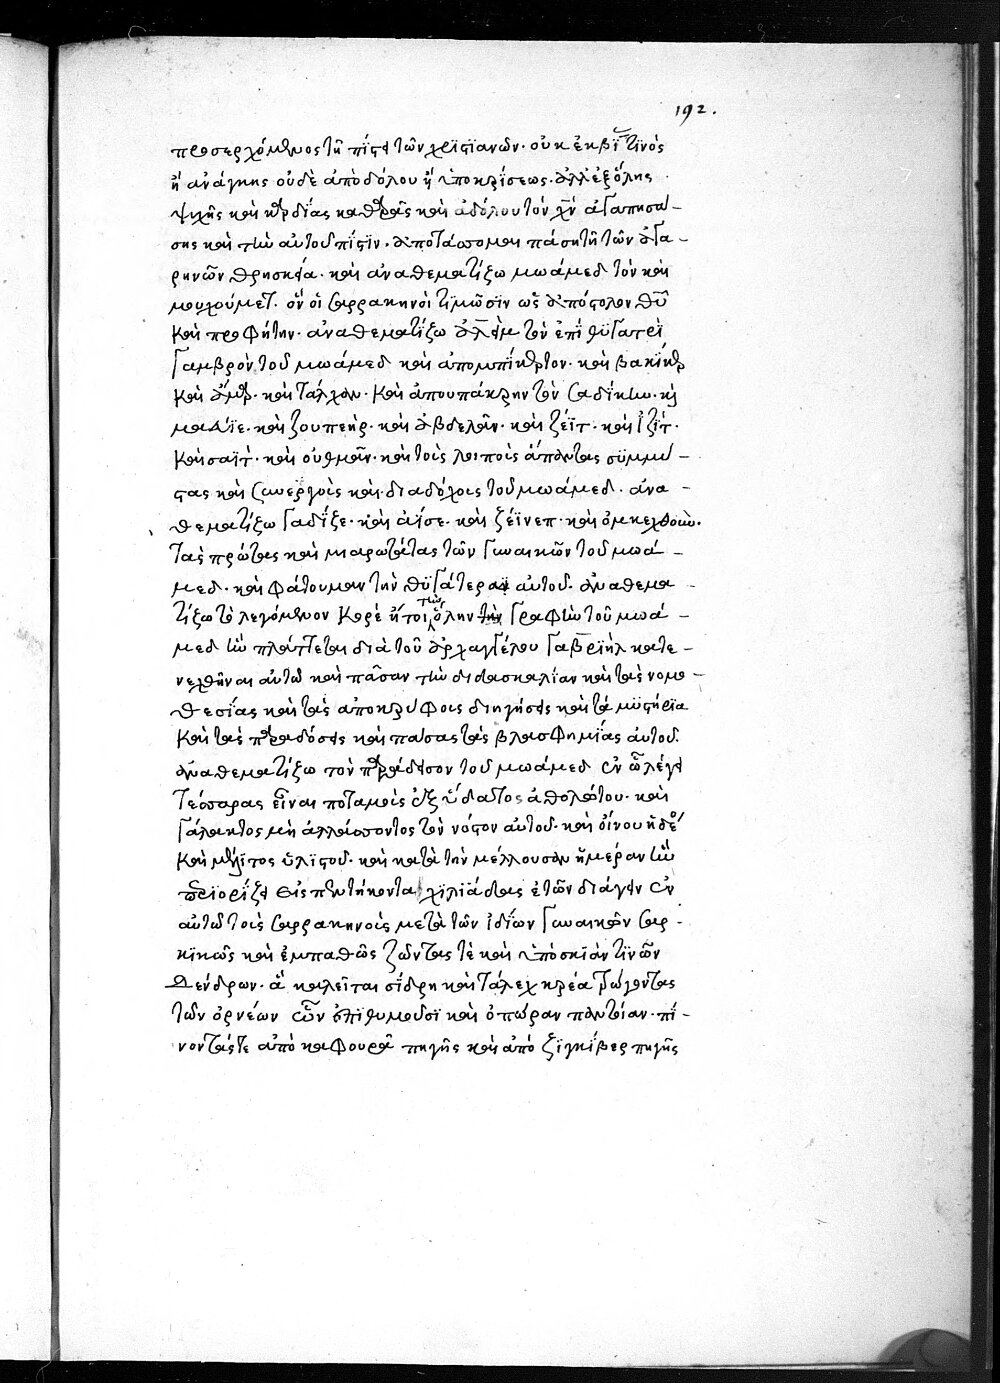 192.
προσερχόμενος τῆ πίστει τῶν χριστιανῶν· οὐκ ἐκ βί τινὸς
ἢ ἀνάγκης οὐδὲ ἀπὸ δόλου ἢ ὑποκρίσεως· ἀλλ' ἐξ ὅλης
ψυχῆς καὶ καρδίας καθαρᾶς καὶ ἀδόλου τὸν χν ἀγαπησά-
σης καὶ τὴν αὐτοῦ πίστιν. ἀποτάσσομαι πάση τῆ τῶν ἀγα-
ρηνῶν θρησκεία· καὶ ἀναθεματίζω μωάμεδ τὸν καὶ
μουχούμετ· ὃν οἱ σαρρακηνοὶ τιμῶσιν ὡς ἀπόστολον θῦ
καὶ προφήτην· ἀναθεματίζω ἀλεὶμ τὸν ἐπὶ θυγατρὶ
γαμβρὸν τοῦ μωάμεδ καὶ ἀπομπίκερτον· καὶ βακίκερ
καὶ ἄμρ· καὶ τάλχαν· καὶ ἀπουπάκρην τὸν σαδίκην· κὶ
μαΔίε· καὶ ζουπεὴρ· καὶ ἀβδελᾶν· καὶ ζέϊτ· καὶ ἰζὶτ·
καὶ σαὶτ· καὶ οὐθμᾶν· καὶ τοὺς λοιποὺς ἅπαντας συμμύ-
στας καὶ συνεργοὺς καὶ διαδόχους τοῦ μωάμεδ. ἀνα-
θεματίζω γαδίξε· καὶ ἀίσε· καὶ ζέϊνεπ· καὶ ὀμκελθοὺν.
τὰς πρώτας καὶ μιαρωτάτας τῶν γυναικῶν τοῦ μωά-
μεδ· καὶ φάτουμαν τὴν θυγατέρα αὐτοῦ. ἀναθεμα-
τίζω τὸ λεγόμενον κορὲ ἤτοι τὴν ὅλην γραφὴν τοῦ μωά-
μεδ ἣν πλάττεται διὰ τοῦ ἀρχαγγέλου γαβριὴλ κατε-
νεχθῆναι αὐτῶ καὶ πᾶσαν τὴν διδασκαλίαν καὶ τὰς νομο-
θεσίας καὶ τὰς ἀποκρύφους διηγήσεις καὶ τὰ μυστήρια
καὶ τὰς παραδόσεις καὶ πάσας τὰς βλασφημίας αὐτοῦ.
ἀναθεματίζω τὸν παράδεισον τοῦ μωάμεδ ἐν ὧ λέγει
τέσσαρας εἶναι ποταμοὺς ἐξ ὕδατος ἀθολώτου· καὶ
γάλακτος μὴ ἀλλάσσοντος τὸν νόστον αὐτοῦ· καὶ οἴνου ἡδέ
καὶ μέλιτος ὑλιστοῦ· καὶ κατὰ τὴν μέλλουσαν ἡμέραν ἣν
περιορίζει εἰς πεντήκοντα χιλιάδας ἐτῶν διάγειν ἐν
αὐτῶ τοὺς σαρρακηνοὺς μετὰ τῶν ἰδίων γυναικῶν σαρ-
κικῶς καὶ ἐμπαθῶς ζῶντας τὲ καὶ ὑπὸ σκιὰν τινῶν
Δένδρων· ἃ καλεῖται σίδρη καὶ τάλεχ κρέα τρώγοντας
τῶν ὀρνέων ὧν ἐπιθυμοῦσι καὶ ὀπώραν παντοίαν· πί-
νοντάς τε ἀπὸ καφουρᾶ πηγῆς καὶ ἀπὸ ζιγκίβερ πηγῆς